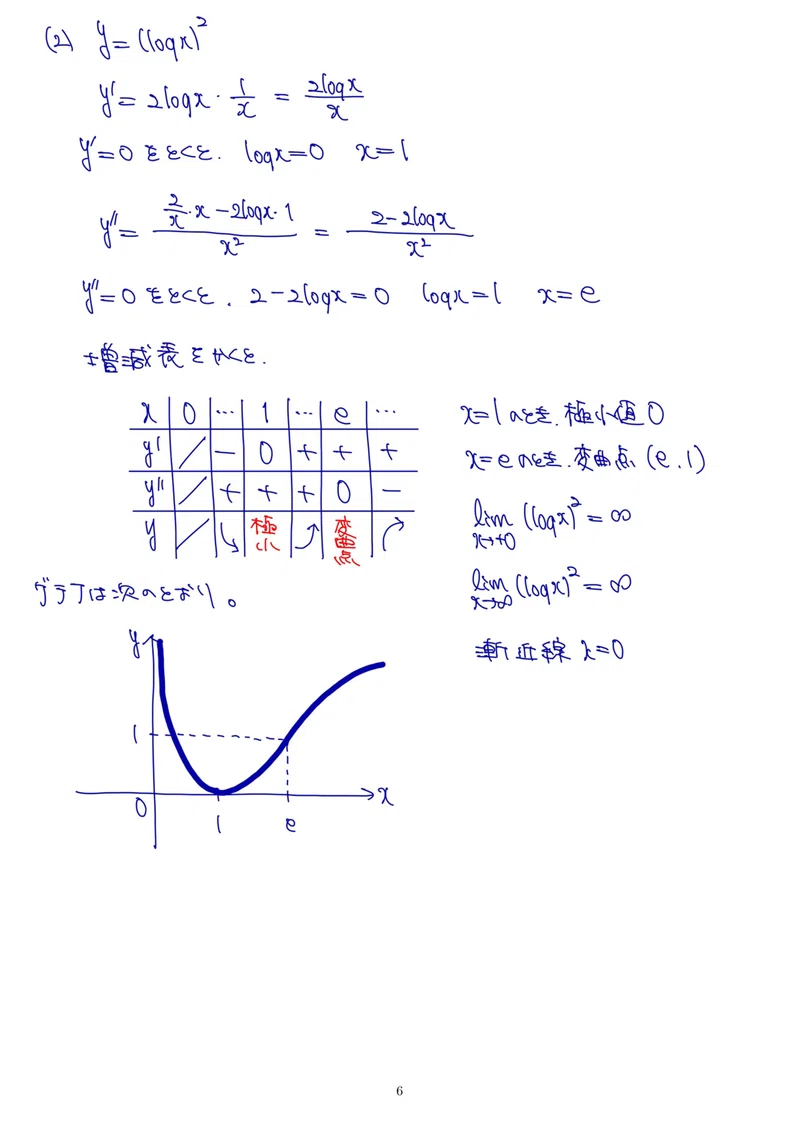 (2) y=(logx)²
y'=2logx・1/x = 2logx/x
y'=0をとくと. logx=0 x=1
y''= (2/x・x-2logx・1)/x² = (2-2logx)/x²
y''=0をとくと. 2-2logx=0 logx=1 x=e
増減表をかくと.
x 0 … 1 … e …
y' / - 0 + + +
y'' / + + + 0 -
y / ⤷ 極小 ⤴ 変曲点 ↱
x=1のとき.極小値0
x=eのとき.変曲点(e.1)
lim x→+0 (logx)²=∞
lim x→∞ (logx)²=∞
漸近線 x=0
グラフは次のとおり。
y
1
0
x
1 e
6